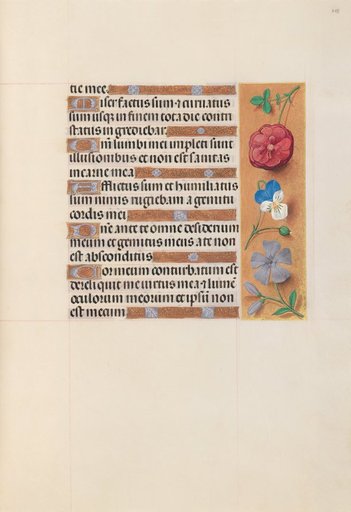 tie mee.
Miser factus sum ⁊ curuatus
sum usq; in finem tota die contri
status ingrediebar.
Qm̄ lumbi mei impleti sunt
illusionibus et non est sanitas
in carne mea.
Afflictus sum et humiliatus
sum nimis rugiebam a gemitu
cordis mei
Dn̄e ante te omne desiderium
meum et gemitus meus a te non
est absconditus
Cor meum conturbatum est
dereliquit me uirtus mea ⁊ lumē
oculorum meorum et ipsū non
est mecum